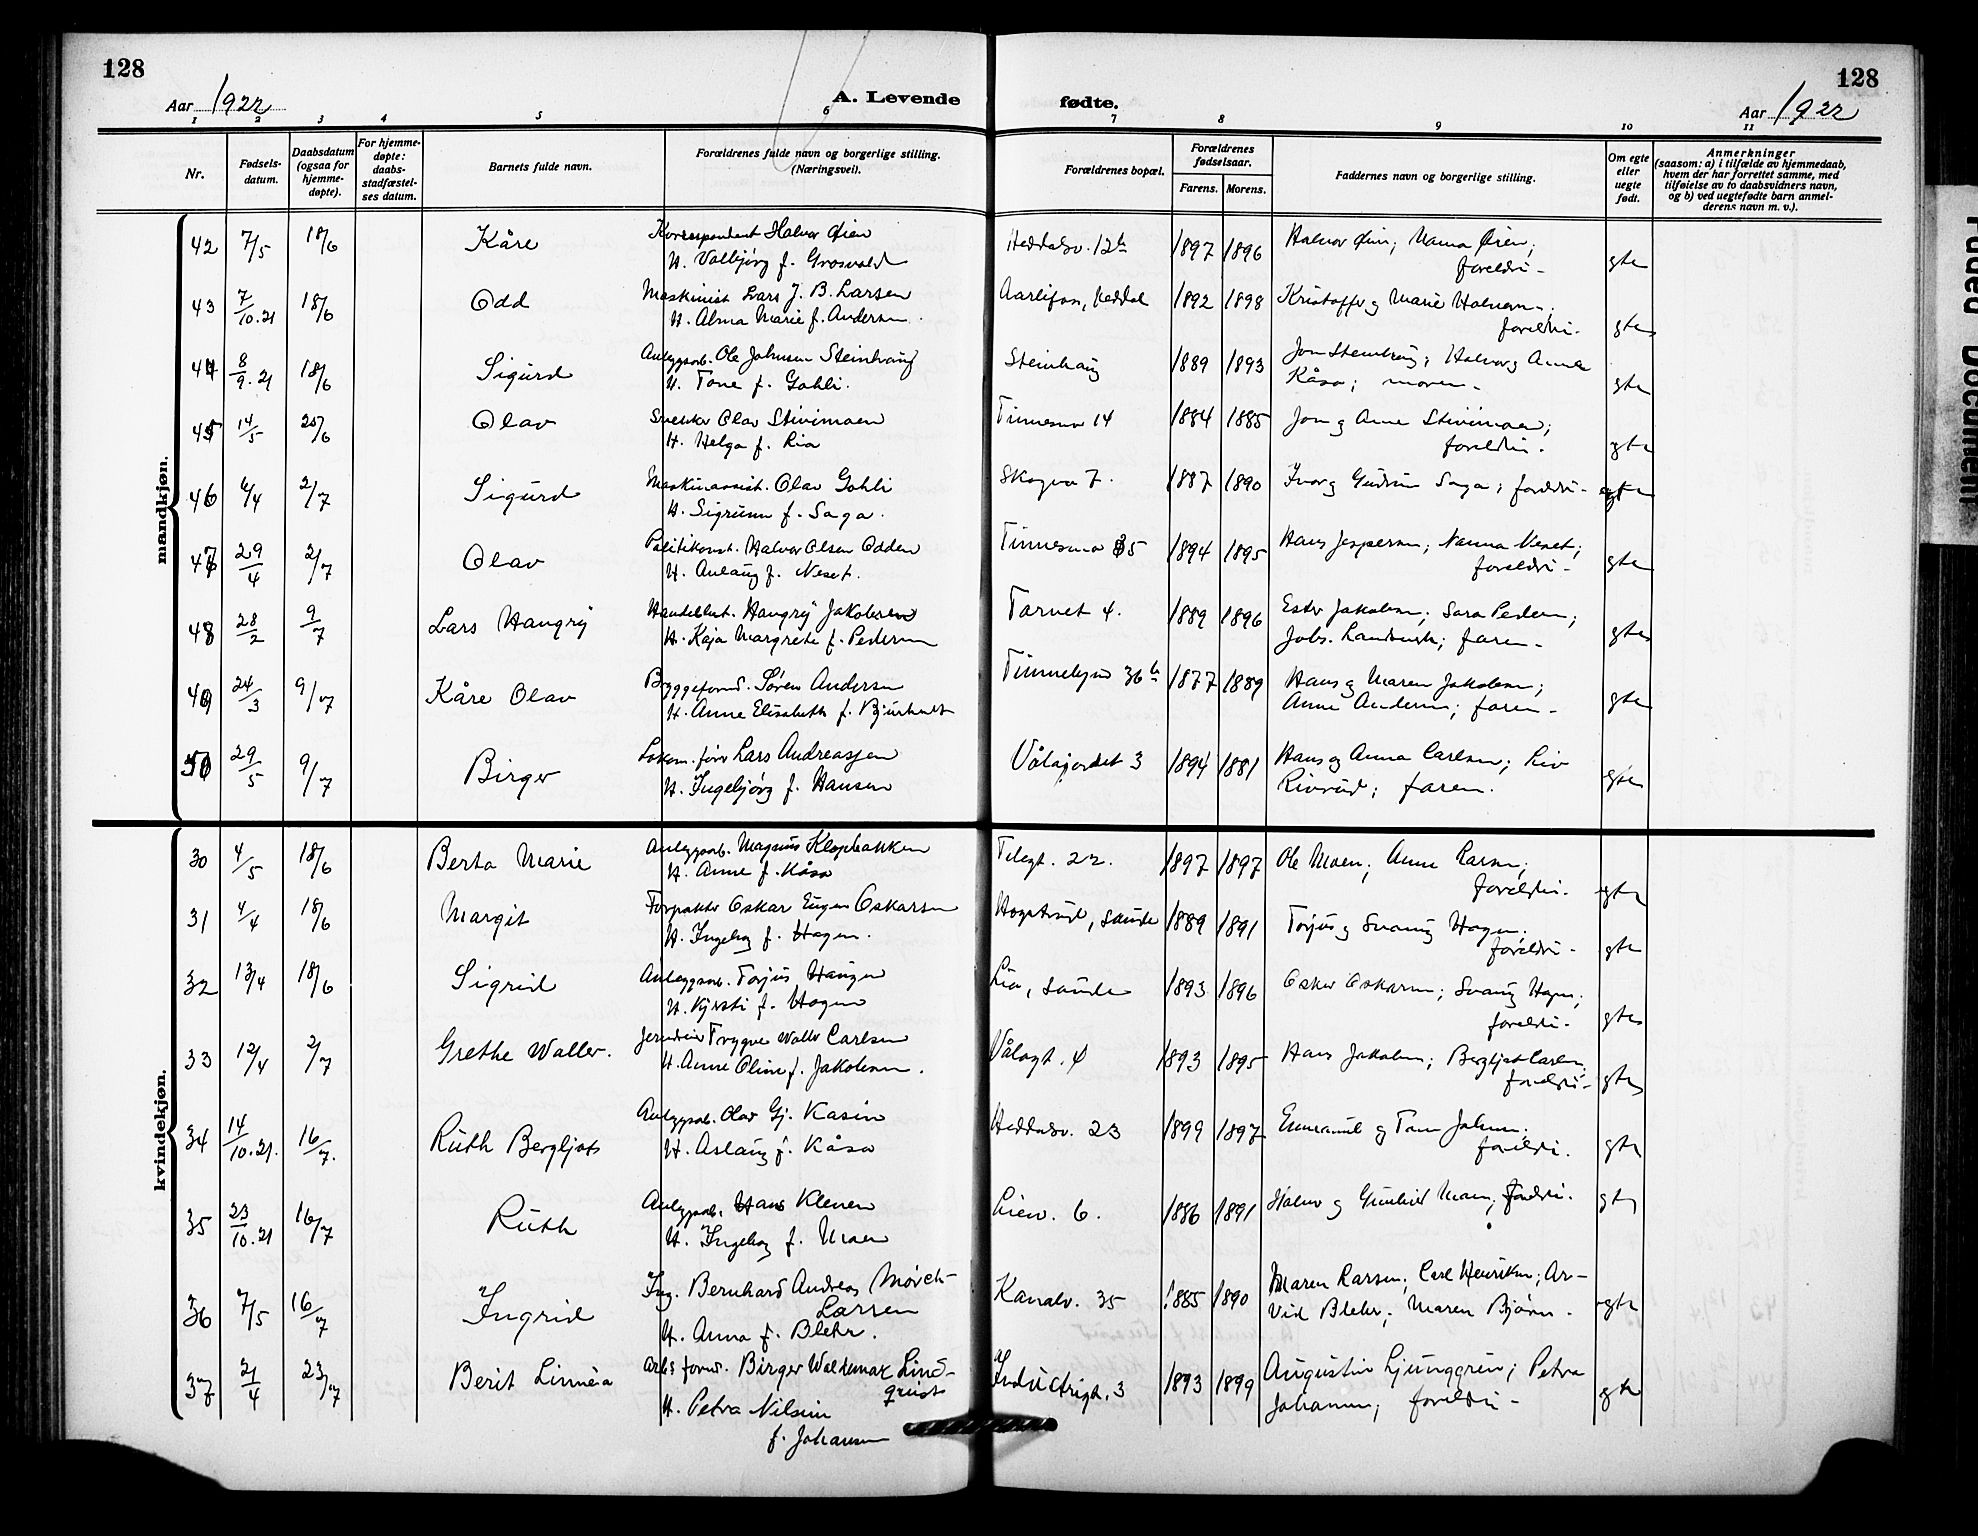 128
128
Aar 1922
A. Levende
fødte.
Aar 1922
1 2 3 4 5 6 7 8 9 10 11
Nr.
Fødsels-
datum.
Daabsdatum
(ogsaa for
hjemme-
døpte).
For hjemme-
døpte:
daabs-
stadfæstel-
ses datum.
Barnets fulde navn.
Forældrenes fulde navn og borgerlige stilling.
(Næringsvei).
Forældrenes bopæl.
Forældrenes
fødselsaar.
Farens. Morens.
Faddernes navn og borgerlige stilling.
Om egte
eller
uegte
født.
Anmerkninger
(saasom: a) i tilfælde av hjemmedaab,
hvem der har forrettet samme, med
tilføielse av to daabsvidners navn,
og b) ved uegtefødte barn anmel-
derens navn m. v.).
mandkjøn.
42 7/5 18/6 Kåre Korrespondent Halvor Øien Heddalsv. 12b 1897 1896 Halvor Øien; Mama Øien; gte
H. Valbjörg f. Grosvold foreldri -
43 7/10.21 18/6 Odd Maskinist Lars J. B. Larsen Aarlifoss, Heddal 1892 1898 Kristoffer og Marie Halvorsen; gte
H. Alma Marie f. Andersen. foreldri.
44 8/9.21 18/6 Sigurd Anleggsarb. Ole Johnsen Steinhaug Steinhaug 1889 1893 Jon Steinhaug; Halvor og Anne gte
H. Tone f. Gohli. Kåsa; moren -
45 14/5 25/6 Olav Snekker Olav Stivimoen Tinnesmo 14 1884 1885 Jon og Anne Stivimoen; gte
H. Helga f. Lia foreldri.
46 6/4 2/7 Sigurd Maskinassist. Olav Gohli Skogva 7. 1887 1890 Ivar og Gudrun Saga; foreldri - gte
H. Sigrunn f. Saga.
47 29/4 2/7 Olav Politikonst. Halvor Olsen Odden Tinnesmo 35 1894 1895 Hans Jespersen; Nanna Neset; gte
H. Aslaug f. Neset. foreldri -
48 28/2 9/7 Lars Haugrij Handelsbet. Haugrij Jakobsen Torvet 4. 1889 1896 Ester Jakobsen; Sara Pedersen; gte
H. Kaja Margrete f. Pedersen Johs. Landmark; faren -
49 24/3 9/7 Kåre Olav Byggeformd. Søren Andersen Tinnebyen 36b 1877 1889 Hans og Maren Jakobsen; gte
H. Anne Elisabeth f. Bjurholt Anne Andersen; faren -
50 29/5 9/7 Birger Lokom. fører Lars Andreassen Vålajordet 3 1894 1881 Hans og Anna Carlsen; Liv gte
H. Ingebjörg f. Hansen Rivrud; faren.
kvindekjøn.
30 4/5 18/6 Berta Marie Anleggsarb. Magnus Klopbakken Telegt. 22. 1897 1897 Ole Moen; Anne Larsen; gte
H. Anne f. Kåsa foreldri.
31 4/4 18/6 Margit Forpakter Oskar Eugen Oskarsen Hogstrud, Saude 1889 1891 Torjus og Svanaug Hagen; gte
H. Ingeborg f. Hagen. foreldri -
32 13/4 18/6 Sigrid Anleggsarb. Torjus Haugen Lia, Saude 1893 1896 Oskar Oskarsen; Svanaug Hagen; gte
H. Kjersti f. Hagen foreldri -
33 12/4 2/7 Grethe Waller. Trygve Waller Carlsen Vålagt. 4 1893 1895 Hans Jakobsen; Bergljot Carlsen; gte
H. Anne Oline f. Jakobsen. foreldri -
34 14/10.21. 16/7. Ruth Bergljots Anleggsarb. Olav Gj. Kasin Heddalsv. 23 1899 1897 Emanuel og Tone Johnsen. gte
H. Aslaug f. Kåsa foreldri.
35 23/10.21 16/7 Ruth Anleggsarb. Hans Kleven Lienv. 6. 1886 1891 Halvor og Gunhild Moen; foreldri. gte
H. Ingeborg f. Moen
36 7/5 16/7 Ingrid Ing. Bernhard Andreas Mørch- Kanalv. 35 1885 1890 Maren Larsen; Carl Henriksen; Ar- gte
Larsen vid Blehr; Maren Bjørn -
H. Anna f. Blehr.
37 21/4 23/7 Berit Linnéa Arbs formd. Birger Waldemar Lind- Industrigt. 3 1893 1899 Augustin Ljunggren; Petra gte
quist Johansen; foreldri -
H. Petra Nilsine
f. Johansen